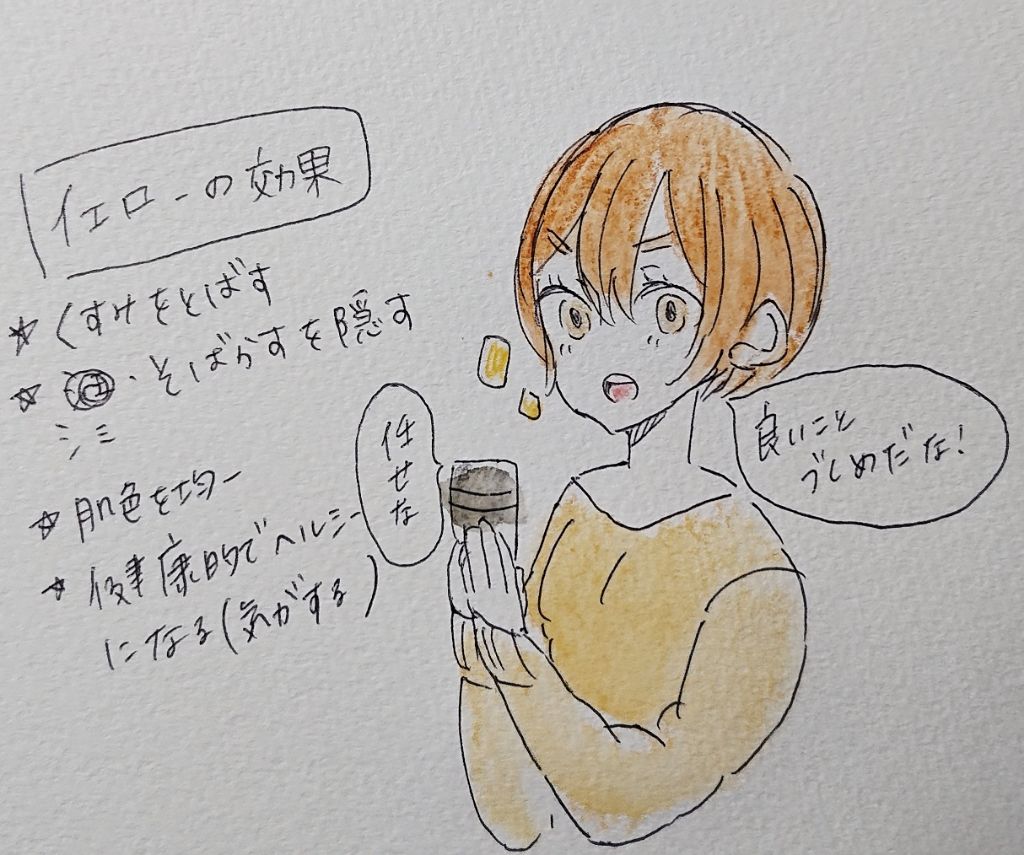 イエローの効果
☆くすみをとばす
☆・そばかすを隠す
シミ
☆肌色を均一
☆健康的でヘルシー
になる(気がする)
任せな
良いこと
づくめだな!